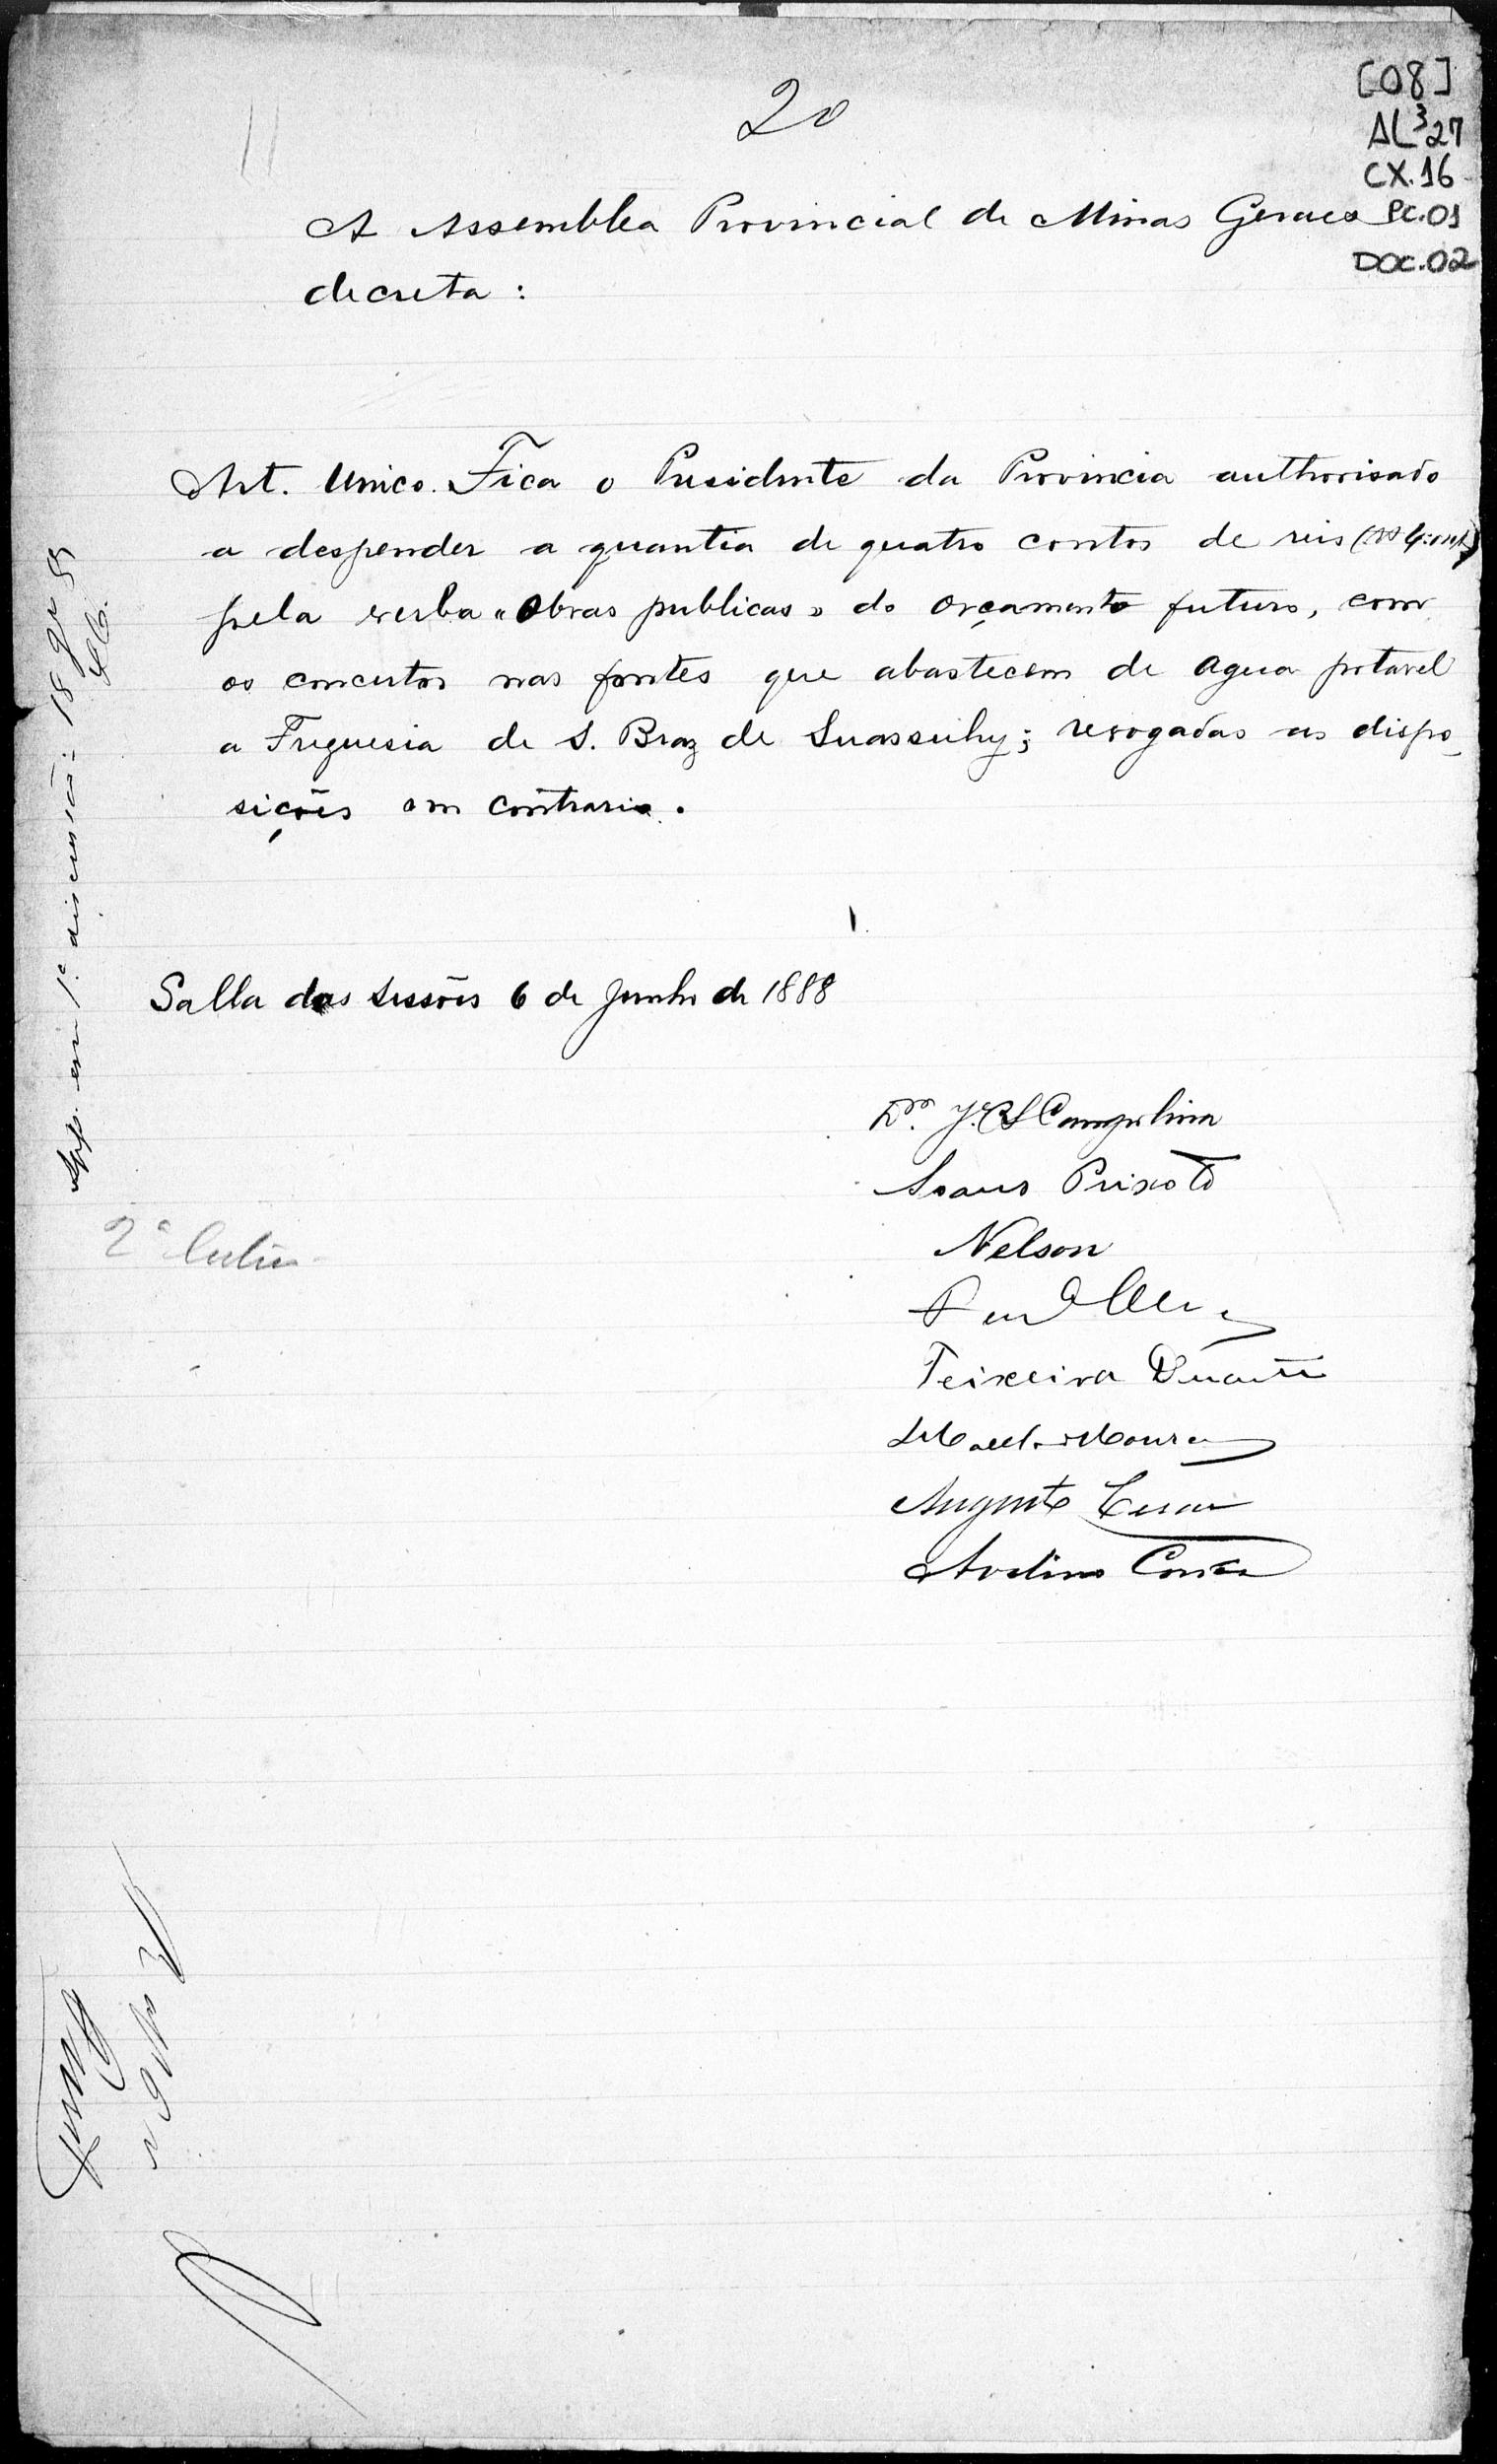 20
[08]
AL³27
CX.16
PC.01
DOC.02
A Assemblea Provincial de Minas Geraes
decreta:
Art. Unico. Fica o Presidente da Provincia authorisado
a despender a quantia de quatro contos de reis
pela verba "Obras publicas" do orçamento futuro, com
os concertos nas fontes que abastecem de agua potavel
a Freguesia de S. Braz de Suassuhy; revogadas as dispo-
sições em contrario.
Salla das sessões 6 de Junho de 1888
Dr. J. Campolina
Soares Peixoto
Nelson
Teixeira Duarte
Moura
Augusto Cesar
Avelino
App. em 1ª discussão: 18
2ª